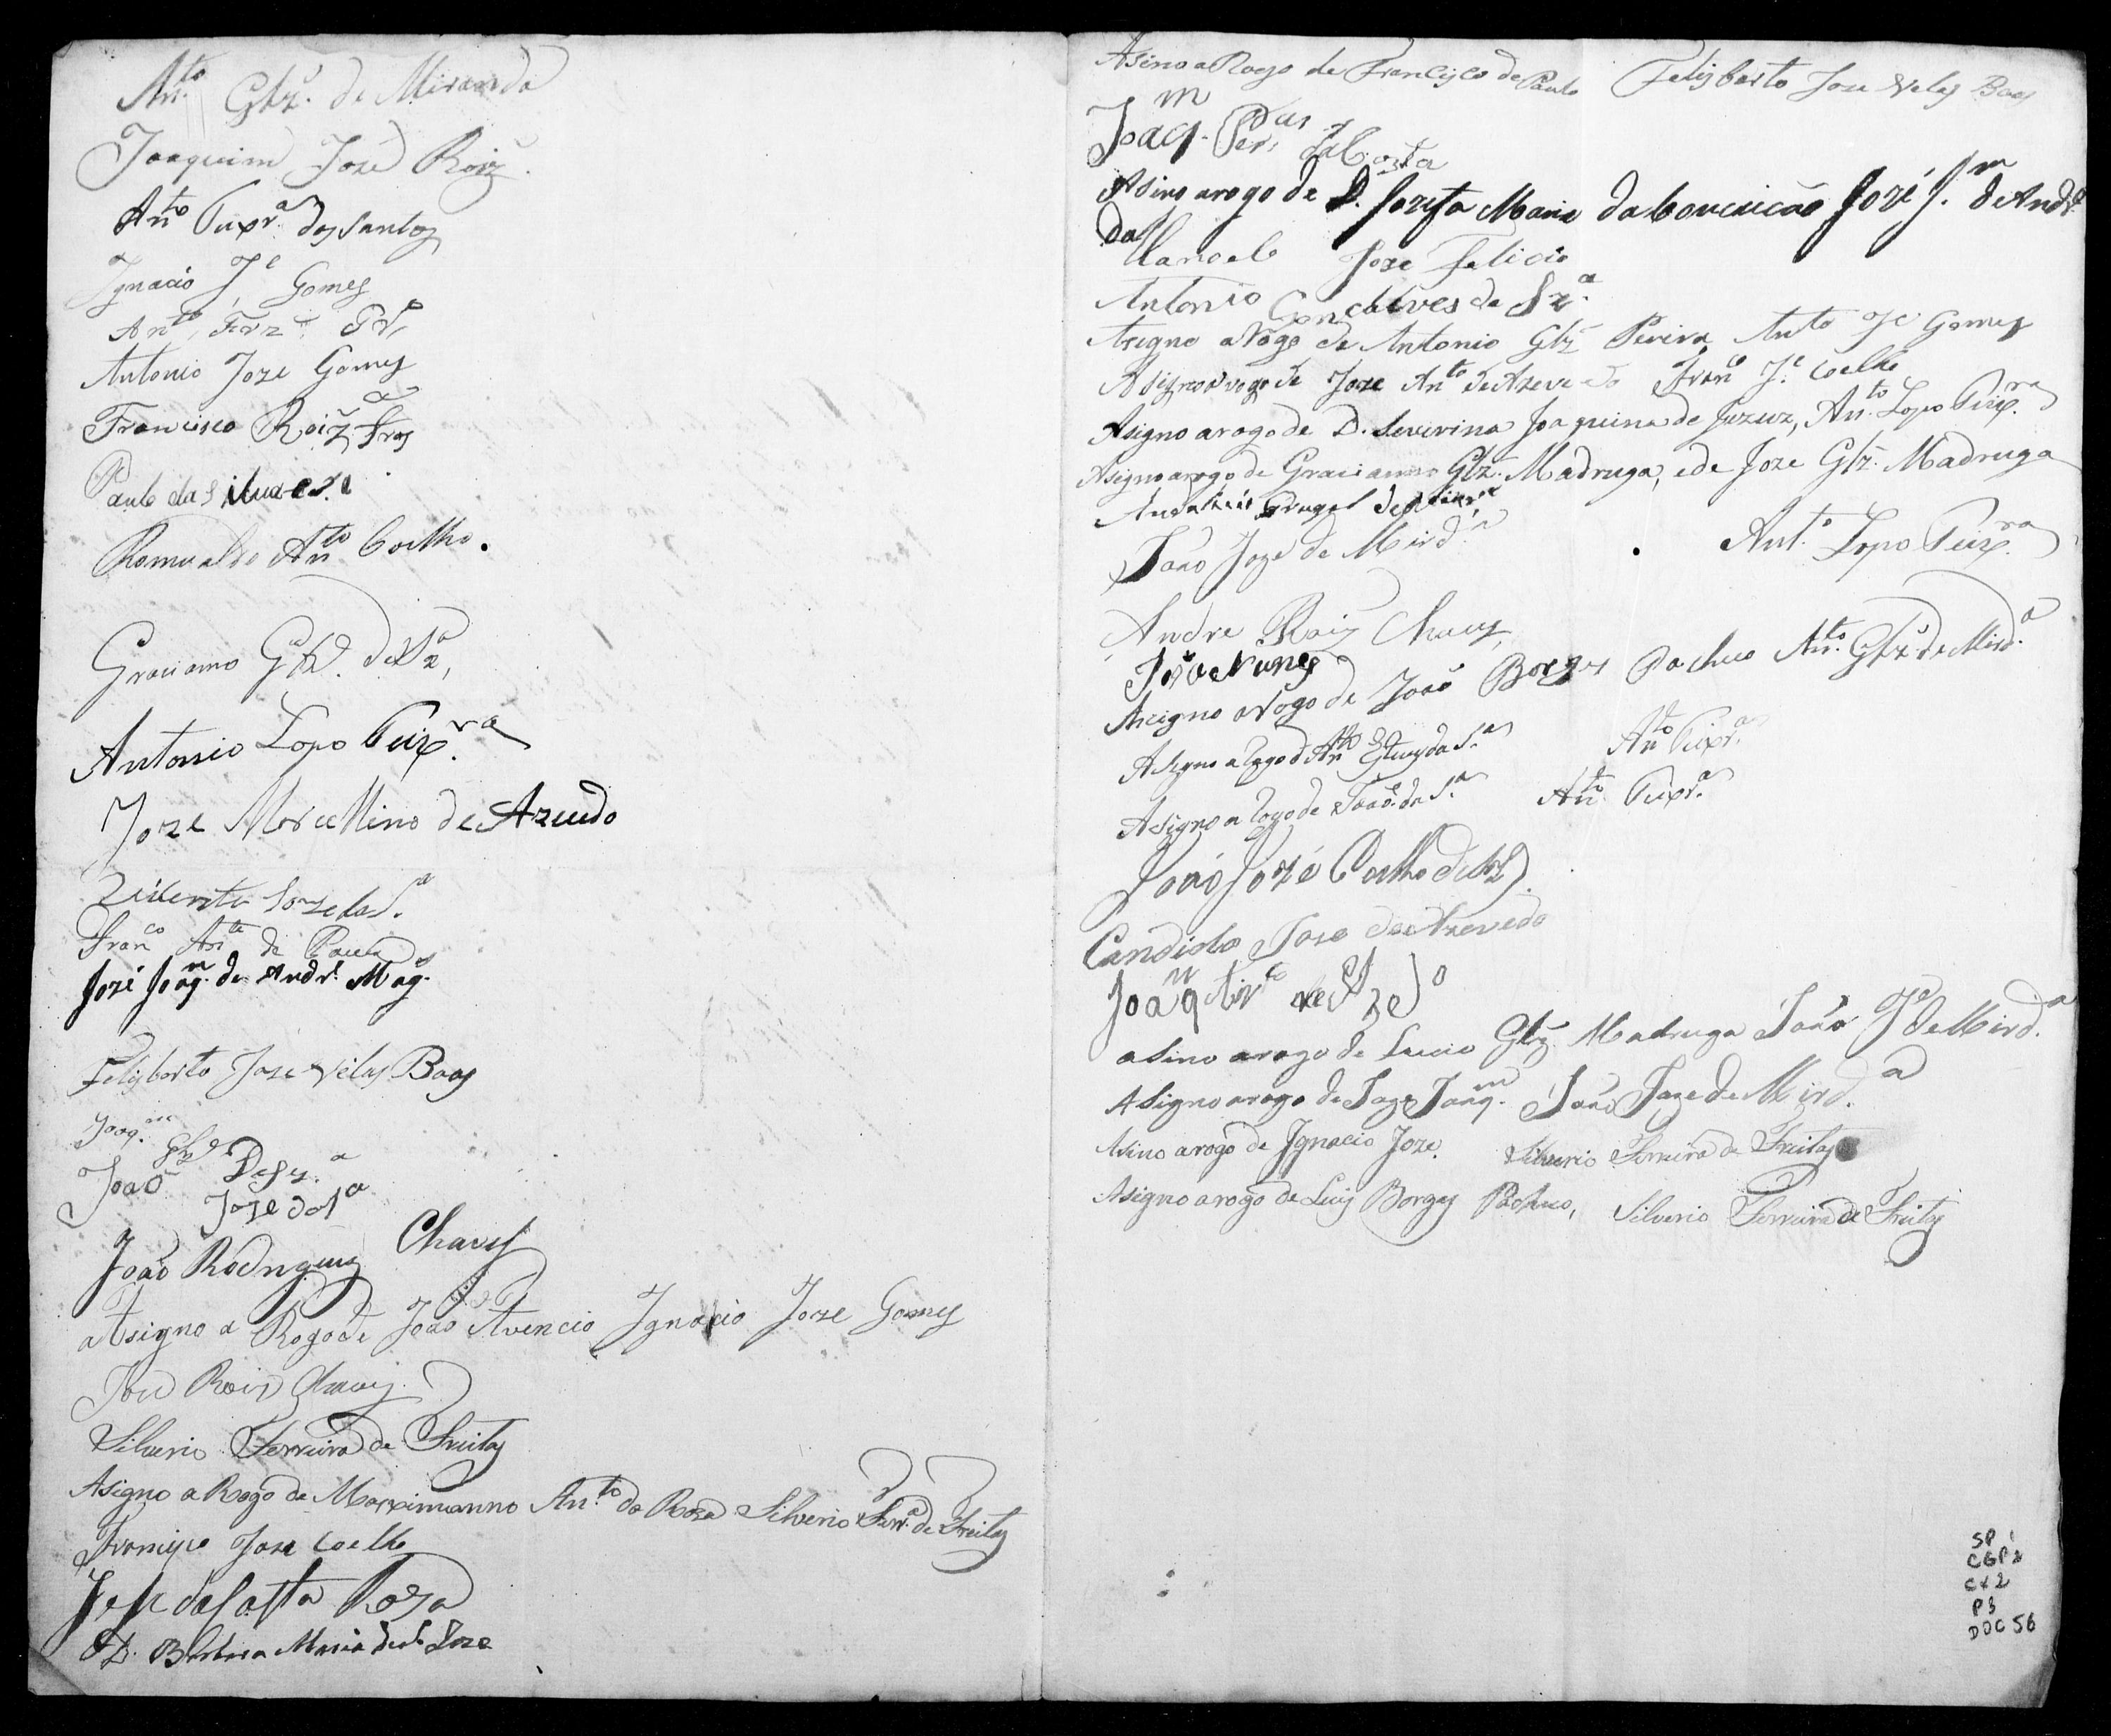 An.to Glz. de Miranda
Joaquim José Roiz.
An.to Teixr.a dos Santos
Ignacio J.e Gomes
An.to Frz
Antonio Joze Gomes
Francisco Roiz
Paulo da Silva
Romualdo An.to Coelho.
Gracianno Glz. de Sz.a
Antonio Lopo Teix.ra
Joze Marcellino de Azevedo
Vicente Joze da S.a
Fran.co An.to de Paula
José Joaq.m de Andr.e Mag.
Felisberto Jose Velas Boas
Joaq.m Glz de Sz.a
João Joze da S.a
João Rodrigues Chaves
Asigno a Rogo de João Avencio Ignacio Joze Gomes
Joze Roiz Chaves
Silverio Ferreira de Freitas
Asigno a Rogo de Maximianno An.to da Roza Silverio Ferr.a de Freitas
Francisco Jose Coelho
da Costa Roza
D. Barbara Maria de S. Joze
Asino a Rogo de Francisco de Paulo Felisberto Jose Velas Boas
Joaq.m Per.a da Costa
Asino arogo de D. Jozefa Maria da Conceicão José J.m de Andr.e
Manoel Joze Felicio
Antonio Gonçalves de Sz.a
Asigno aRogo de Antonio Glz Pereira Anto J.e Gomes
Asigno arogo de Joze An.to de Azevedo Fran.co J.e Coelho
Asigno arogo de D. Severina Joaquina de Juzus, An.to Lopo Teix.ra
Asigno arogo de Gracianno Glz. Madruga, e de Joze Glz. Madruga
Ant.o Lopo Teix.ra
João Joze de Mird.a
Andre Roiz Chaves
João Nunes
Asigno aRogo de João Borges Pacheco An.to Glz de Mird.a
Asigno a Rogo d An.to da S.a An.to Teixr.a
Asigno a Rogo de João da S.a An.to Teixr.a
João José Coelho de Sz.
Candido Jose de Azevedo
Joaq.m
asino arogo de Lucio Glz. Madruga João J.e de Mird.a
Asigno arogo de Joze Joaq.m João Joze de Mird.a
Asino arogo de Ignacio Joze. Silverio Ferreira de Freitas
Asigno arogo de Luis Borges Pacheco, Silverio Ferreira de Freitas
SP
CGP2
CX2
P3
DOC 56